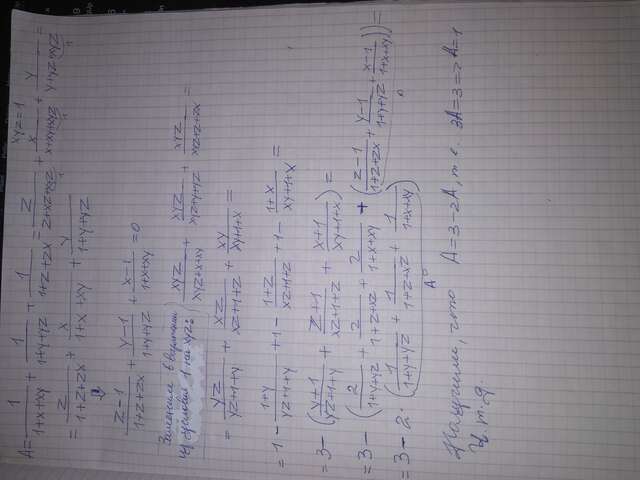 xyz=1
A = 1/(1+x+xy) + 1/(1+y+yz) + 1/(1+z+zx) = z/(z+zx+xyz) + x/(x+xy+xyz) + y/(y+yz+xyz) =
= z/(1+z+zx) + x/(1+x+xy) + y/(1+y+yz)
(z-1)/(1+z+zx) + (y-1)/(1+y+yz) + (x-1)/(1+x+xy) = 0
Заменим в выражении
из условия 1 на xyz:
xyz/(xyz+x+xy) + xyz/(xyz+y+yz) + xyz/(xyz+z+zx) =
= yz/(yz+1+y) + xz/(xz+1+z) + xy/(xy+1+x) =
= 1 - (1+y)/(yz+1+y) + 1 - (1+z)/(xz+1+z) + 1 - (1+x)/(xy+1+x) =
= 3 - ((y+1)/(yz+1+y) + (z+1)/(xz+1+z) + (x+1)/(xy+1+x)) =
= 3 - (2/(1+y+yz) + 2/(1+z+xz) + 2/(1+x+xy) + (z-1)/(1+z+zx) + (y-1)/(1+y+yz) + (x-1)/(1+x+xy)) =
= 3 - 2·(1/(1+y+yz) + 1/(1+z+xz) + 1/(1+x+xy))
A
Получим, что A=3-2A, т.е. 3A=3 => A=1
Ч.т.д.